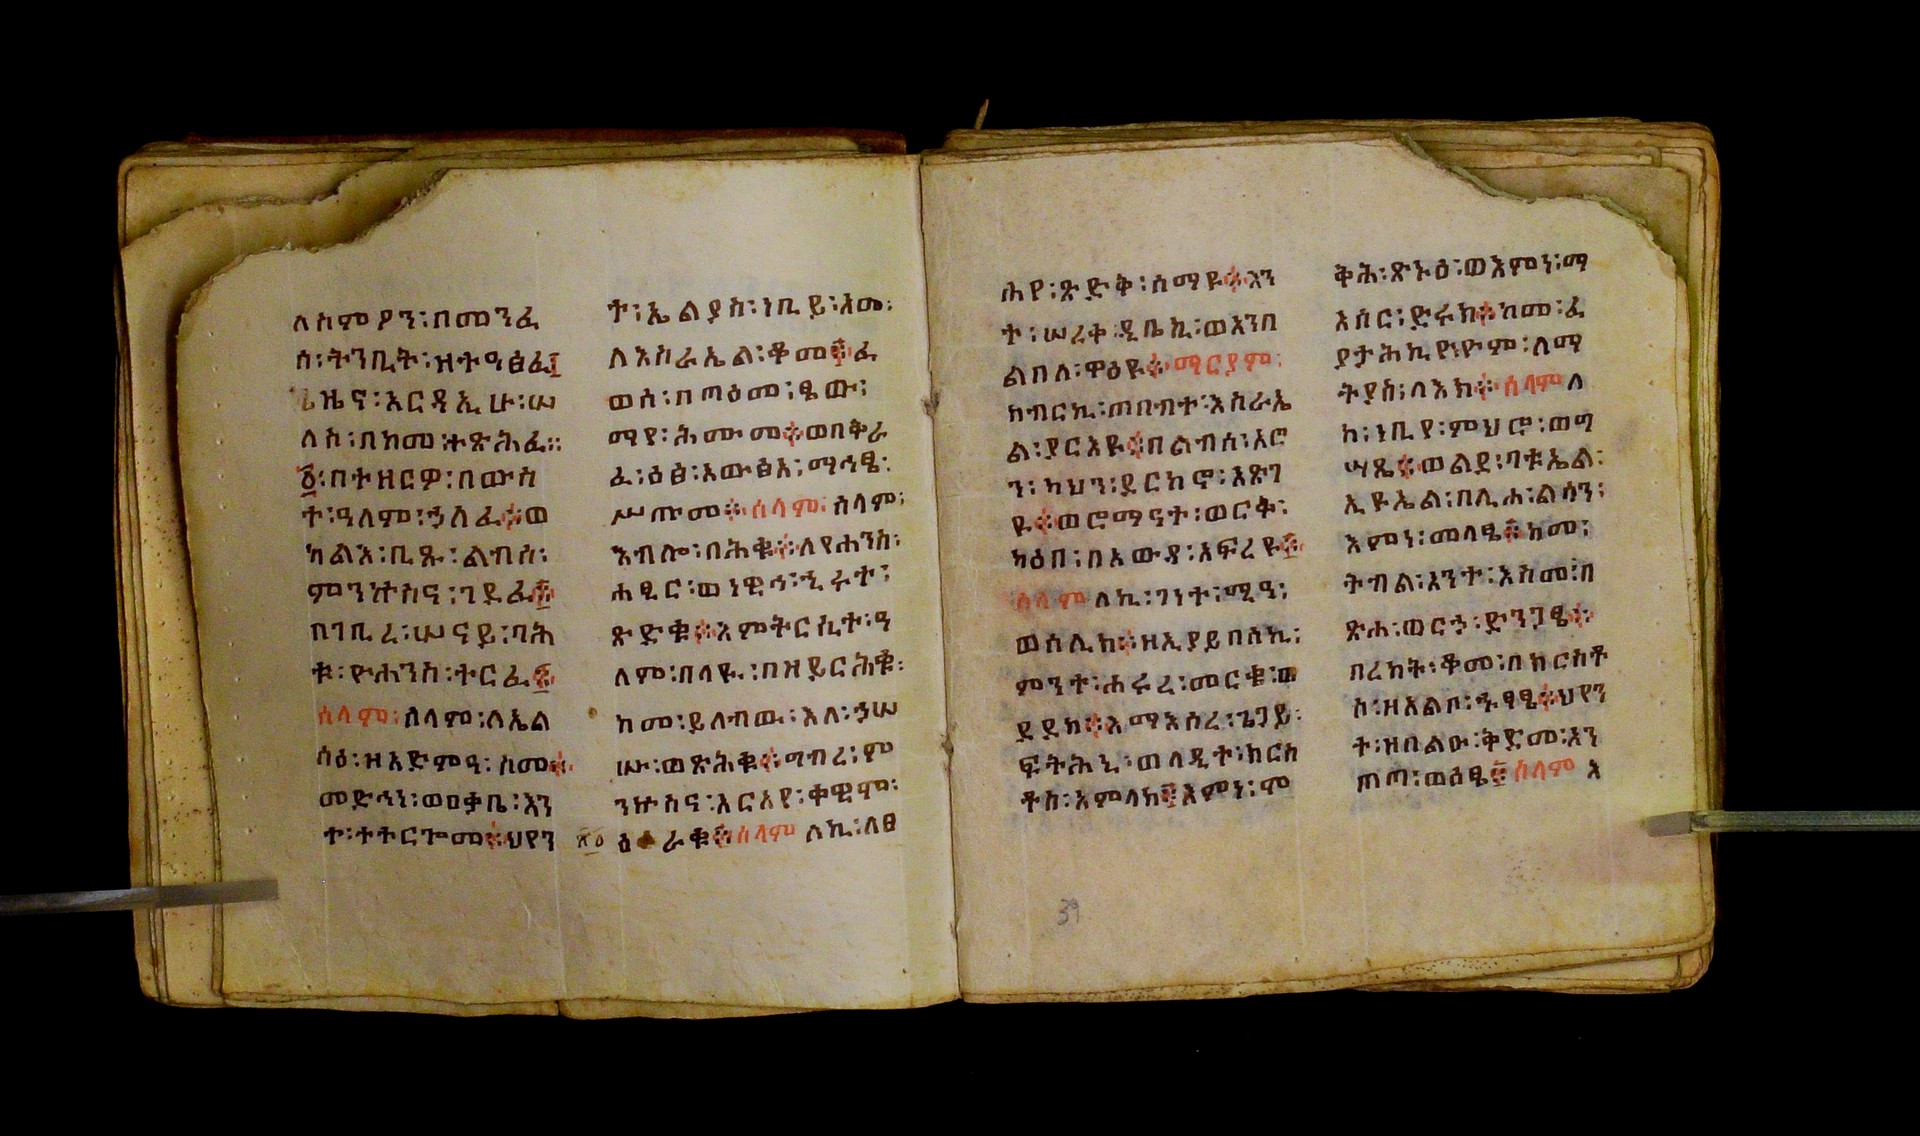 ለስምዖን፡በመንፈ
ሰ፡ትንቢት፡ዝተዓፅፈ፤
ጊዜኖ፡አርዳኢሁ፡ሠ
ለስ፡በከመ፡ተጽሕፈ።
፩፡በተዘርዎ፡በውስ
ተ፡ዓለም፡ኃለፈ፨ወ
ካልእ፡ቢጹ፡ልብሰ፡
ምንኵስና፡ገደፈ፨
በገቢረ፡ሠናይ፡ባሕ
ቱ፡ዮሐንስ፡ተርፈ፨
ሰላም፡ሰላም፡ለኤል
ሳዕ፡ዘአድምዓ፡ስመ፨
መድኅነ፡ወዐቃቤ፡እን
ተ፡ተተርጐመ፨ህየን
ተ፡ኤልያስ፡ነቢይ፡እመ፡
ለእስራኤል፡ቆመ፨ፈ
ወሰ፡በጣዕመ፡ፄው፡
ማየ፡ሕሙመ፨ወበቅራ
ፈ፡ዕፅ፡አውፅአ፡ማኅፄ፡
ሥጡመ፨ሰላም፡ሰላም፡
እብሎ፡በሕቁ፨ለዮሐንስ፡
ሐፂር፡ወነዊኅ፡ኂሩት፡
ጽድቁ፨እምትርሢተ፡ዓ
ለም፡በላዪ፡በዝይርሕቁ፡
ከመ፡ይለብዉ፡እለ፡ኃሠ
ሡ፡ወጽሕቁ፨ግብረ፡ም
ንኵስና፡አርአየ፡ቀዊሞ፡
ዕራቁ፨ሰላም ለኪ፡ለፀ
ሐየ፡ጽድቅ፡ሰማዩ፨እን
ተ፡ሠረቀ፡ዲቤኪ፡ወእንበ
ልበለ፡ዋዕዩ፨ማርያም፡
ክብርኪ፡ጠበብተ፡እስራኤ
ል፡ያርእዩ፨በልብሰ፡አሮ
ን፡ካህን፡ደርከኖ፡እጽገ
ዪ፨ወሮማናተ፡ወርቅ፡
ካዕበ፡በአውዳ፡አፍረዩ፨
ሰላም ለኪ፡ገነተ፡ሚዓ፡
ወሰሊክ፨ዘኢያይበሰኪ፡
ምንተ፡ሐሩረ፡መርቄ፡ወ
ደደክ፨እማእሰረ፡ጌጋይ፡
ፍትሕኒ፡ወላዲተ፡ክርስ
ቶስ፡አምላክ፨እምነ፡ሞ
ቅሕ፡ጽኑዕ፡ወእምን፡ማ
እሰር፡ድሩክ፨ከመ፡ፈ
ያታሕኪዮ፡ዮም፡ለማ
ትያስ፡ላእክ፨ሰላም ለ
ከ፡ነቢየ፡ምህሮ፡ወግ
ሣጼ፨ወልደ፡ባቱኤል፡
ኢዩኤል፡በሊሐ፡ልሳን፡
እምነ፡መላፄ፨ከመ፡
ትብል፡አንተ፡እስመ፡በ
ጽሐ፡ወርኃ፡ድንጋፄ፨
በረከት፡ቆመ፡በክርስቶ
ስ፡ዘአልቦ፡ሑፃፄ፨ህየን
ተ፡ዝበልዑ፡ቅድመ፡አን
ጠጣ፡ወዕፄ፨ሰላም እ
39